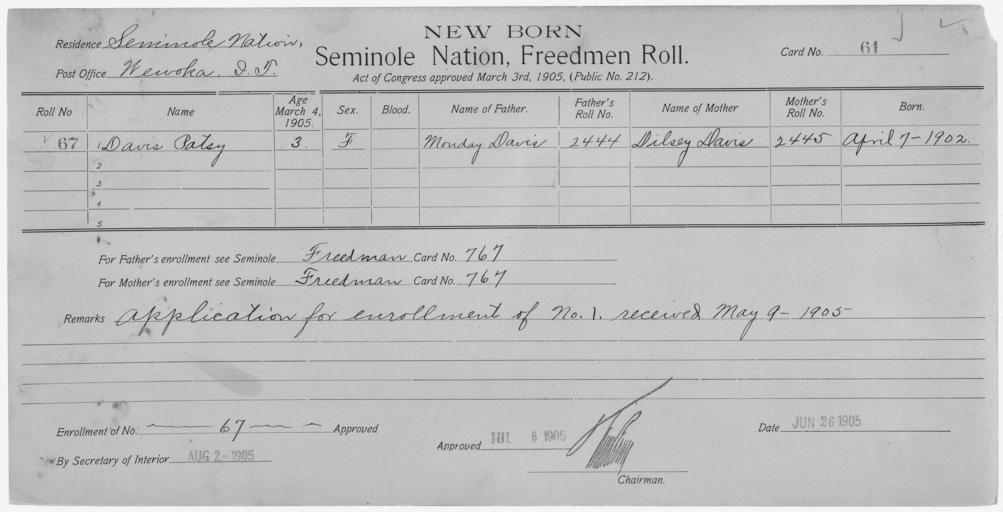 NEW BORN
Seminole Nation, Freedmen Roll.
Act of Congress approved March 3rd, 1905, (Public No. 212).
Residence Seminole Nation,
Post Office Wewoka, I. T.
Card No. 61
Roll No Name Age March 4, 1905. Sex. Blood. Name of Father. Father's Roll No. Name of Mother Mother's Roll No. Born.
67 1 Davis Patsy 3. F Monday Davis 2444 Dilsey Davis 2445 April 7-1902.
2
3
4
5
For Father's enrollment see Seminole Freedman Card No. 767
For Mother's enrollment see Seminole Freedman Card No. 767
Remarks Application for enrollment of No. 1. received May 9- 1905
Enrollment of No. 67 Approved
By Secretary of Interior AUG 2-1905
Approved JUL 6 1905
Chairman.
Date JUN 26 1905